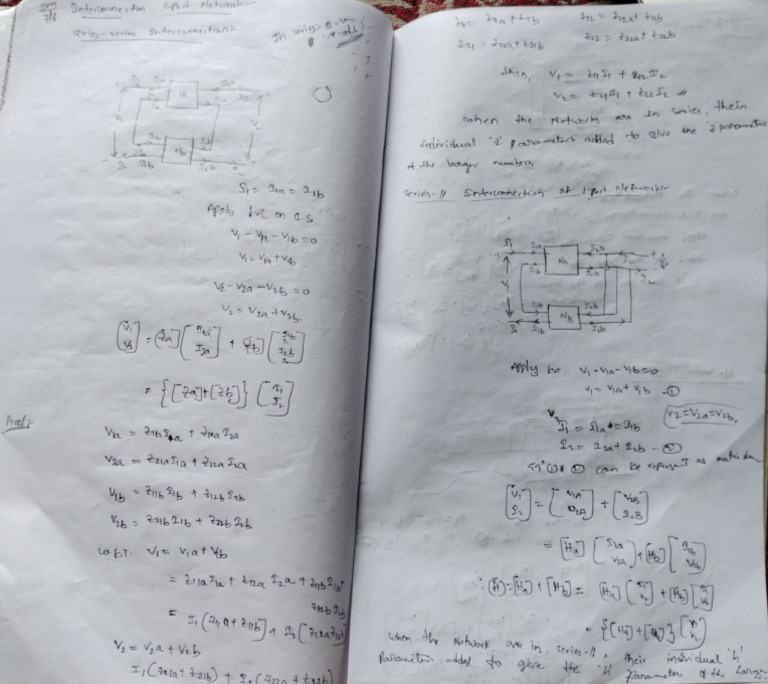 Interconnection 2port Networks
series-series Interconnections
Na
Nb
I1 = I1a = I1b
Apply kvl on
V1 - V1a - V1b = 0
V1 = V1a + V1b
V2 - V2a - V2b = 0
V2 = V2a + V2b
[V1 V2] = [Za] [I1a I2a] + [Zb] [I1b I2b]
= {[Za]+[Zb]} [I1 I2]
Proof:
V1a = Z11a I1a + Z12a I2a
V2a = Z21a I1a + Z22a I2a
V1b = Z11b I1b + Z12b I2b
V2b = Z21b I1b + Z22b I2b
W.K.T. V1 = V1a + V1b
= Z11a I1a + Z12a I2a + Z11b I1b +
Z12b I2b
= I1 (Z11a + Z11b) + I2 (Z12a Z12b)
V2 = V2a + V2b
I1 (Z21a + Z21b) + I2 (Z22a + Z22b)
Z11 = Z11a + Z11b Z12 = Z12a + Z12b
Z21 = Z21a + Z21b Z22 = Z22a + Z22b
then, V1 = Z11 I1 + Z12 I2
V2 = Z21 I1 + Z22 I2 //
when the Networks are in series, their
individual 'z' parameters added to give the z parameters
of the larger numbers
series-11 Interconnection of 2port Networks
Na
Nb
Apply V1 - V1a - V1b = 0
V1 = V1a + V1b - ①
V2 = V2a = V2b,
I1 = I1a = I1b
I2 = I2a + I2b - ②
① ② can be represent as matrix
[V1 I2] = [V1A I2A] + [V1B I2B]
= [Ha] [I1a V2a] + [Hb] [I1b V2b]
∴ (H) = [Ha] + [Hb] = [Ha] [I1 V2] + [Hb] [I1 V2]
= {[Ha] + [Hb]} [I1 V2]
when the Network are in series-11, their individual 'h'
parameters added to give the 'H' parameters of the Larger